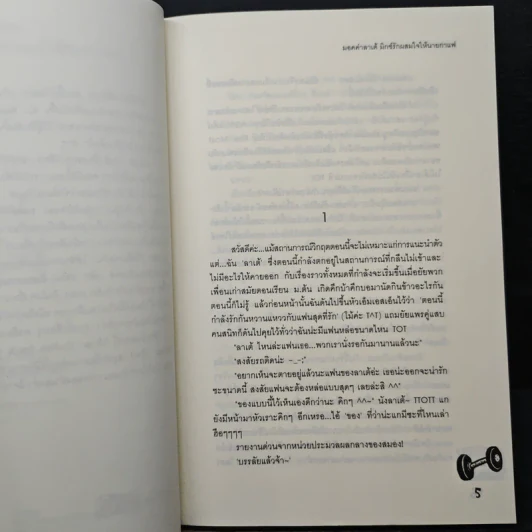 มอคค่าลาเต้ มิกซ์รักผสมใจให้นายกาแฟ
1
สวัสดีค่ะ...แม้สถานการณ์วิกฤตตอนนี้จะไม่เหมาะแก่การแนะนำตัว
แต่...ฉัน 'ลาเต้' ซึ่งตอนนี้กำลังตกอยู่ในสถานการณ์ที่กลืนไม่เข้าและ
ไม่มีอะไรให้คายออก กับเรื่องราวทั้งหมดที่กำลังจะเริ่มขึ้นเมื่อยัยพวก
เพื่อนเก่าสมัยตอนเรียน ม.ต้น เกิดคึกบ้าคึกบอมานัดกินข้าวอะไรกัน
ตอนนี้ก็ไม่รู้ แล้วก่อนหน้านั้นฉันดันไปขึ้นหัวเอ็มเอสเอ็นไว้ว่า 'ตอนนี้
กำลังรักกันหวานแหววกับแฟนสุดที่รัก' (ไม้ค่ะ T^T) แถมยัยแพรคู่แสบ
คนสนิทก็ดันไปคุยไว้ทั่วว่าฉันน่ะมีแฟนหล่อขนาดไหน TOT
'ลาเต้ ไหนล่ะแฟนเธอ...พวกเรานั่งรอกันมานานแล้วนะ'
'สงสัยรถติดน่ะ -_-;'
'อยากเห็นจะตายอยู่แล้วนะแฟนของลาเต้อ่ะ เธอน่ะออกจะน่ารัก
ซะขนาดนี้ สงสัยแฟนจะต้องหล่อแบบสุดๆ เลยล่ะสิ ^^'
'ของแบบนี้ไว้เห็นเองดีกว่านะ คิกๆ ^^~' นังลาเต้~ TTOTT แก
ยังมีหน้ามาหัวเราะคิกๆ อีกเหรอ...ไอ้ 'ของ' ที่ว่าน่ะแกมีซะที่ไหนเล่า
ฮือๆๆๆๆ
รายงานด่วนจากหน่วยประมวลผลกลางของสมอง!
'บรรลัยแล้วจ้า~'
5